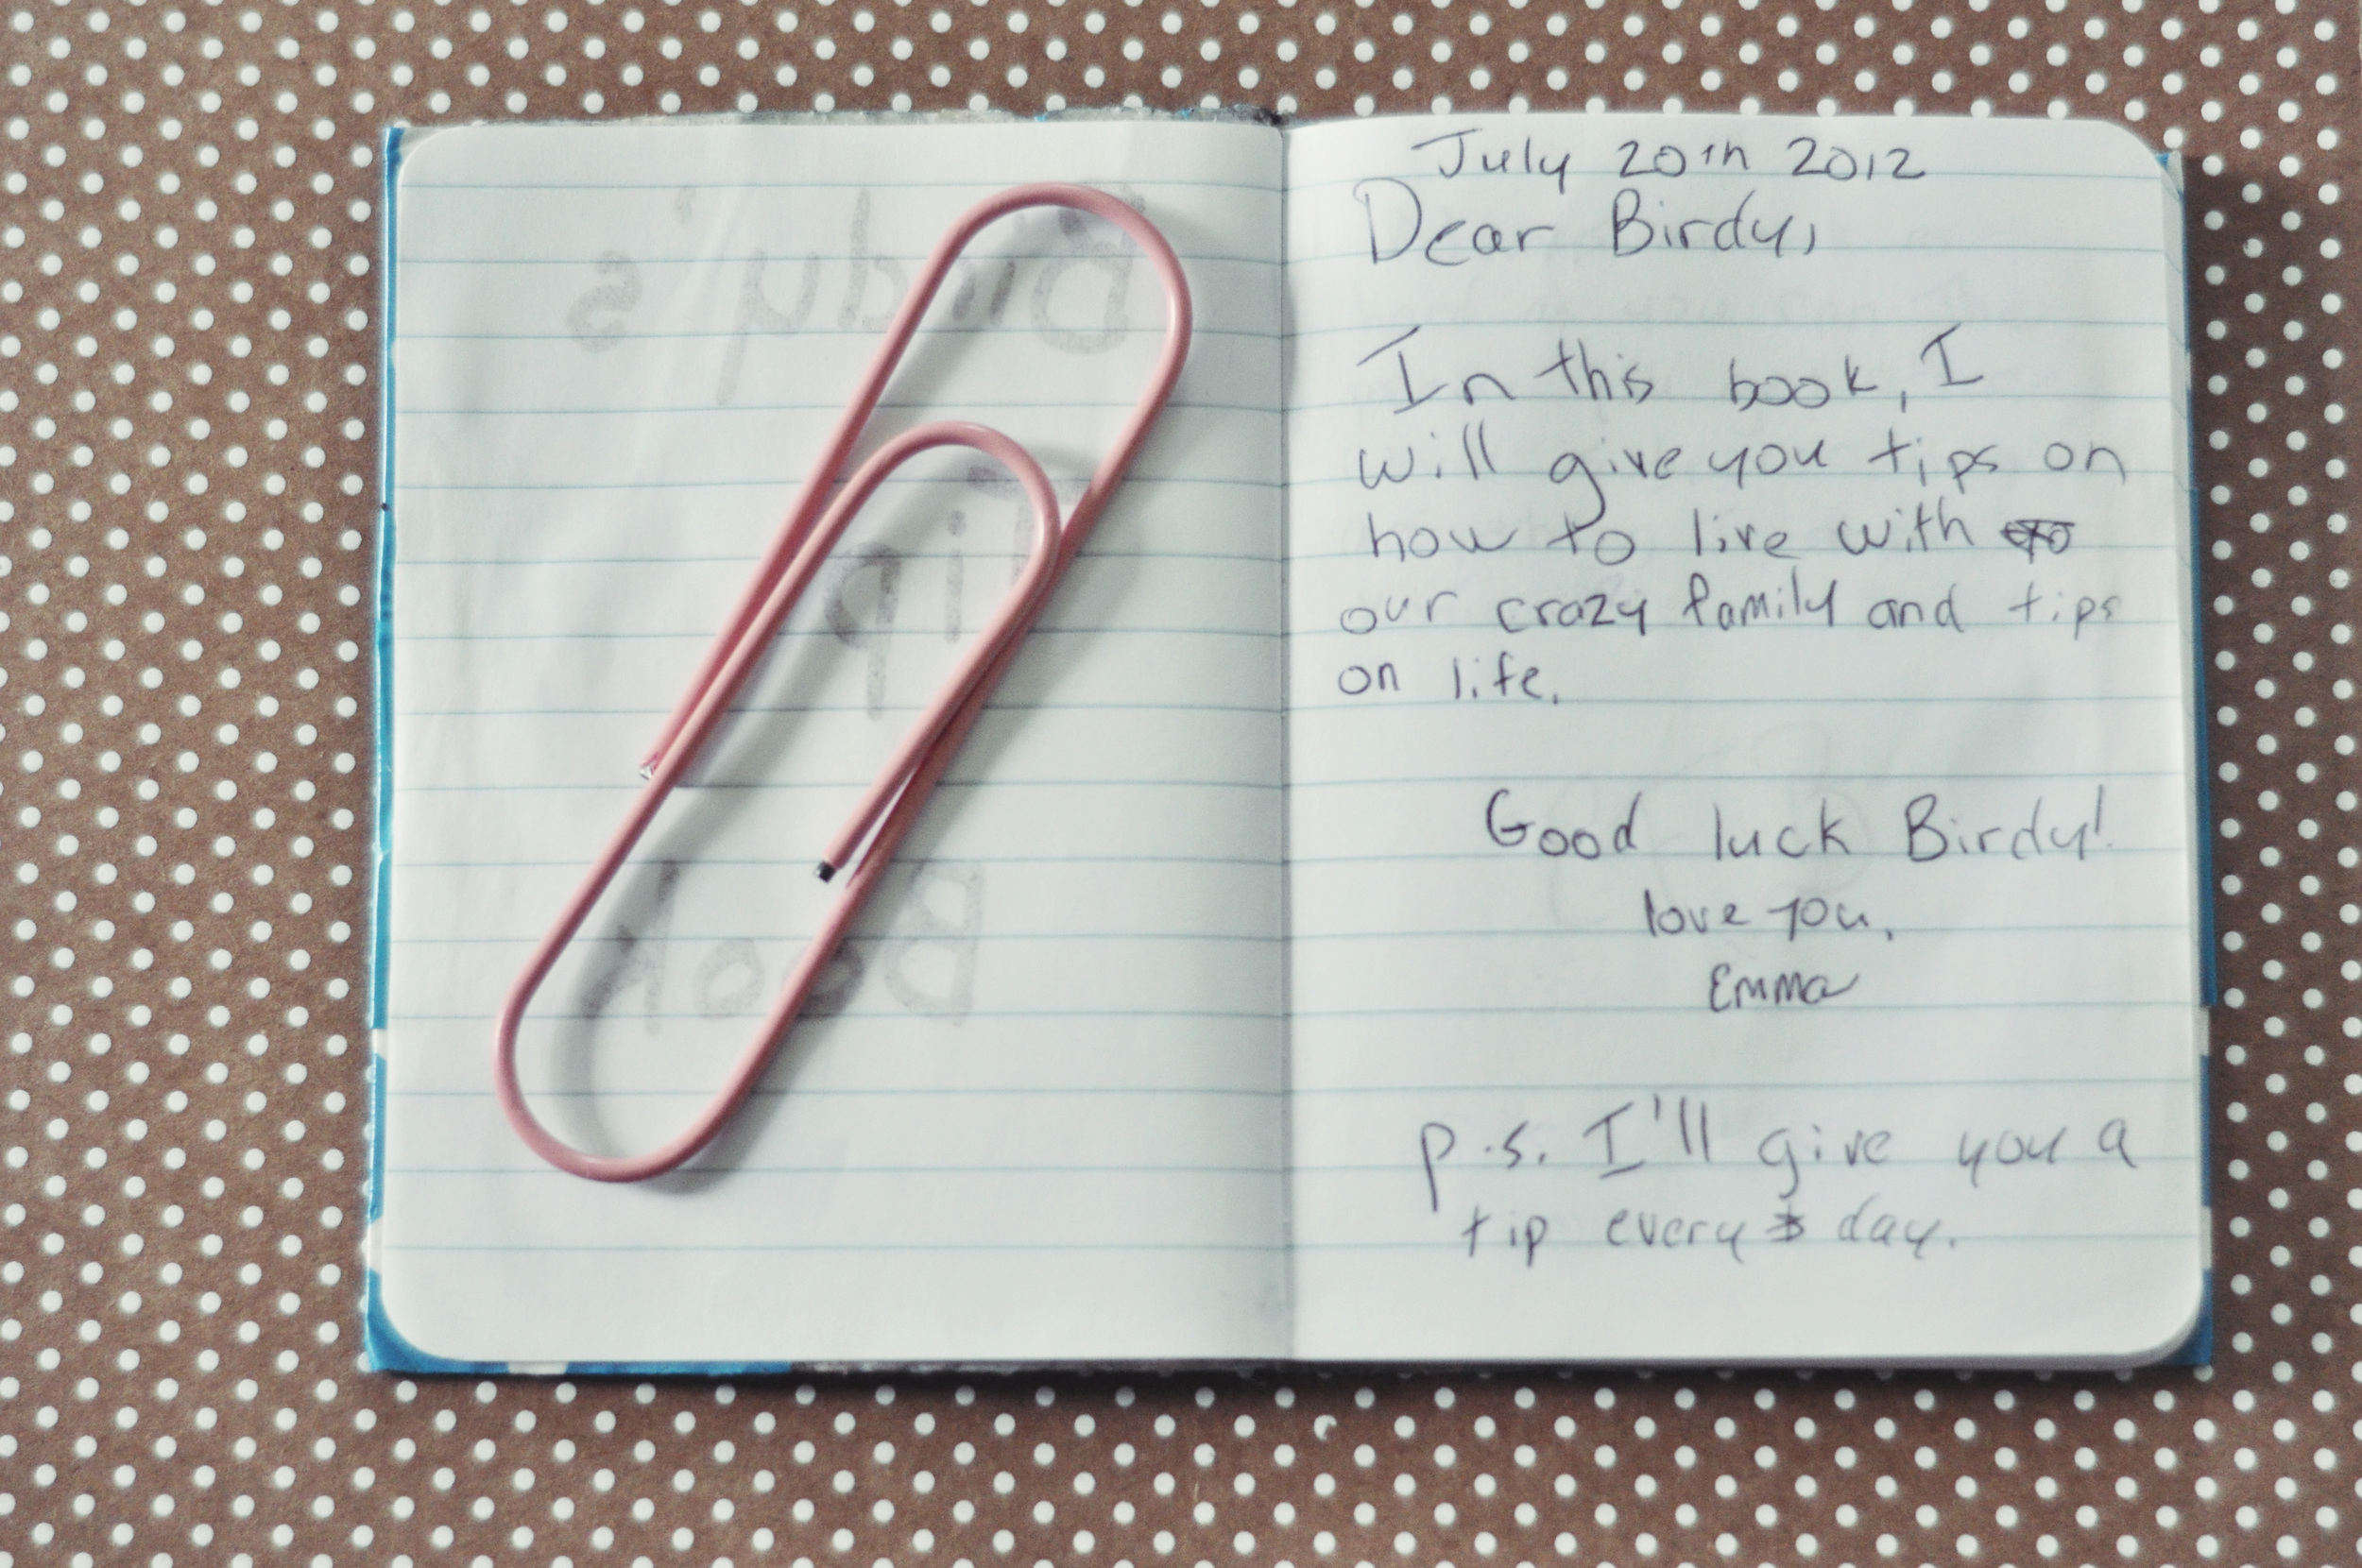 Birdy's
Tip
Book
July 20th 2012
Dear Birdy,
In this book, I
will give you tips on
how to live with
our crazy family and tips
on life.
Good luck Birdy!
love you,
Emma
p.s. I'll give you a
tip every day.